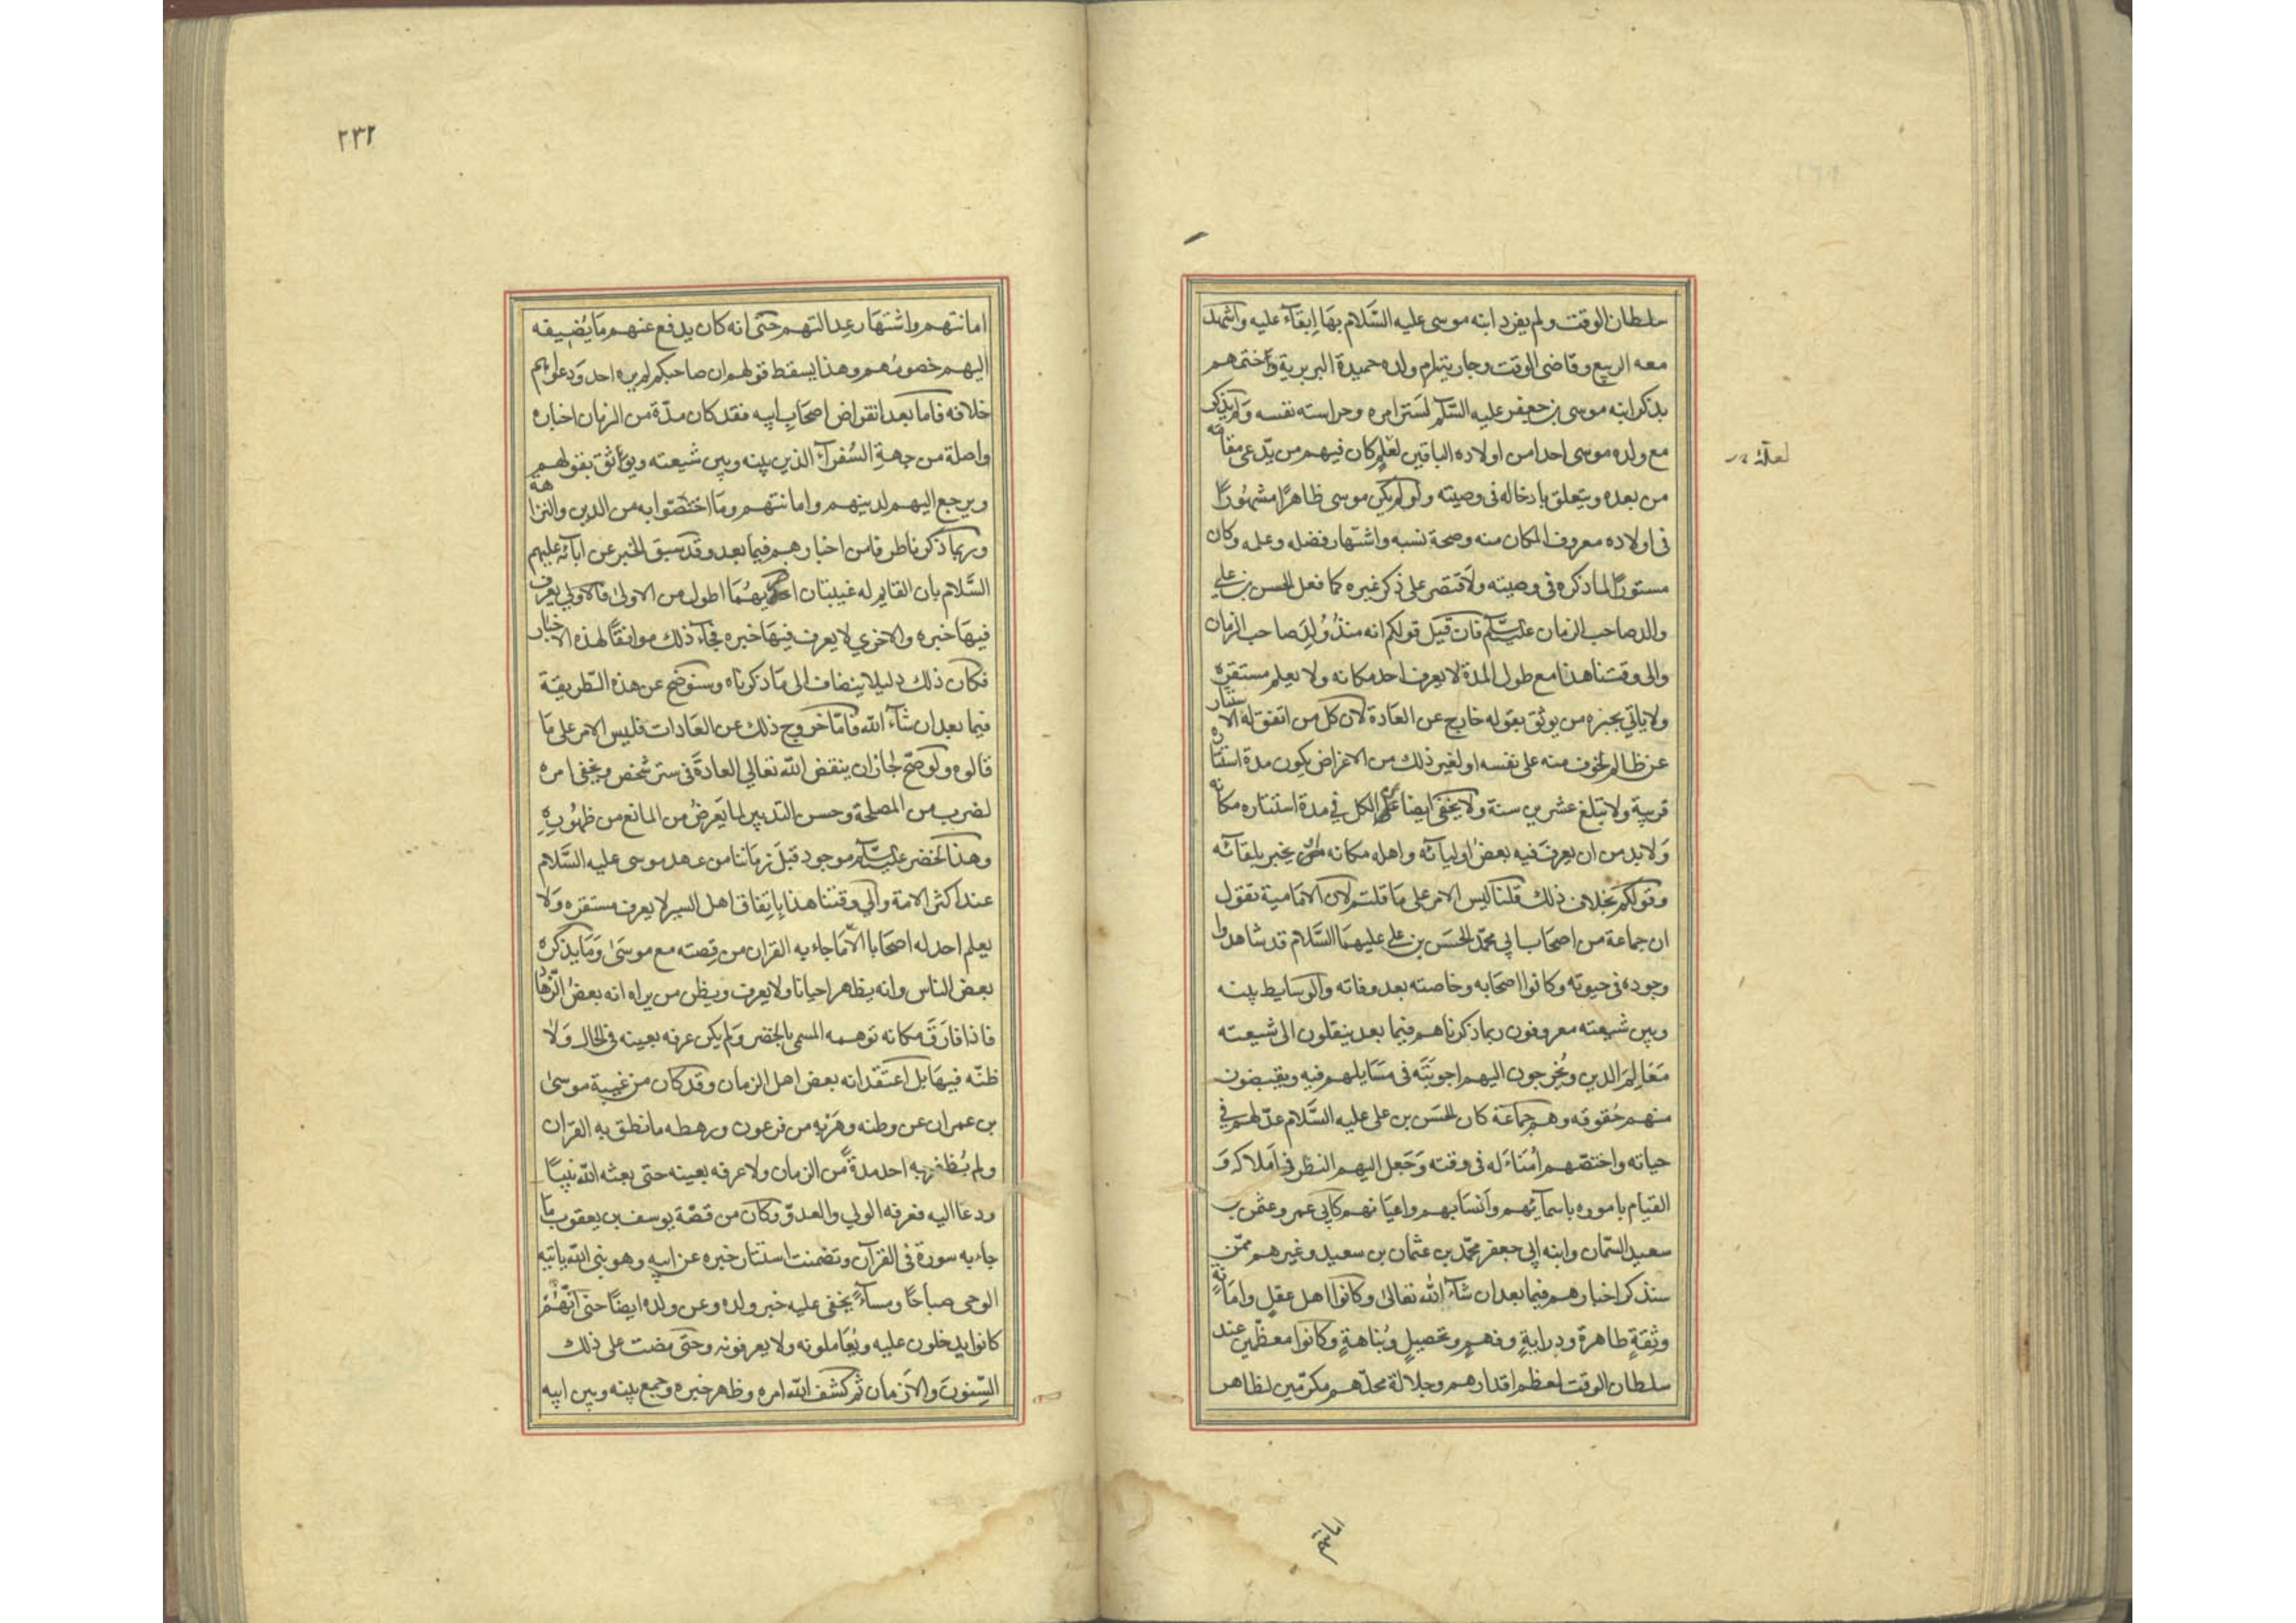 سلطان الوقت ولم يفرد ابنه موسى عليه السَّلام بها اِبقآء عليه واشهد
معه الربيع وقاضى الوقت وجاريته ام ولده حميدة البربرية واختمهم
بذكر ابنه موسى بن جعفر عليه السَّلم لستر امره وحراسته نفسه ولم يذكر
مع ولده موسى احدا من اولاده الباقين لعلم كان فيهم من يدّعى مقامه
لعلّه
من بعده ويتعلق بادخاله فى وصيته ولو لم يكن موسى ظاهرًا مشهُورًا
فى اولاده معروف المكان منه وصحة نسبه واشتهار فضله وعلمه وكان
مستورًا لما ذكره فى وصيته ولاقتصر على ذكر غيره كما فعل الحسن بن علي
والد صاحب الزمان عليه السّلم فان قيل قولكم انه منذ وُلِدَ صاحب الزمان
والى وقتنا هذا مع طول المدة لا يعرف احد مكانه ولا يعلم مستقره
ولا ياتي بخبره من يوثق بقوله خارج عن العَادة لان كل من اتفق له الاستتار
عن ظالم لخوف منه على نفسه او لغير ذلك من الاغراض يكون مدة استتاره
قريبة ولا تبلغ عشرين سنة ولا يخفى ايضا على الكل في مدة استتاره مكانه
وَلا بد من ان يعرف فيه بعض اوليآئه واهله مكانه يخبر بلقآئه
وقولكم بخلاف ذلك قلنا ليس الامر على ما قلتم لان الامَامية تقول
ان جماعة من اصحَاب ابي محمّد الحسَن بن علي عليهمَا السَّلام قد شاهدوا
وجوده فى حيوته وكانوا اصحَابه وخاصته بعد وفاته والوسايط بينه
وبين شيعته معروفون ربما ذكرناهم فيما بعد ينقلون الى شيعته
مَعَالِمَ الدين ويُخرجون اليهم اجوبَتَه فى مَسَايلهم فيه ويقبضون
منهم حُقوقه وهم جماعة كان الحسَن بن على عليه السَّلام عدّلهم في
حياته واختصّهم اُمَنَاءَ له فى وقته وَجَعل اليهم النظر فى اَملاكه وَ
القيام باموره باسمآئهم وَاَنسَابهم واعيَانهم كابي عمر وعثمن بن
سعيد السّمان وابنه ابي جعفر محمّد بن عثمان بن سعيد وغيرهم ممّن
سنذكر اخبارهم فيما بعد ان شآء اللّٰه تعالىٰ وكانوا اهل عقلٍ وامَانةٍ
وثِقةٍ طاهرة ودرايةٍ وفهمٍ وتحصيلٍ ونُباهةٍ وكانوا معظّمين عند
سلطان الوقت لعظم اقدارهم وجلالة محلّهم مكرّمين لظاهر
٢٣٢
امانتهم واشتهَار عِدالتهم حتىّ انه كان يدفع عنهم مَا يُضيفه
اليهم خصومُهم وهذا يسقط قولهم ان صاحبكم لم يره احد ودعواهم
خلافه فاما بعد انقراض اصحَاب ابيه فقد كان مدّة من الزمان اخباره
واصلة من جهةِ السُفرآء الذين بينه وبين شيعته ويوثق بقولهم
ويرجع اليهم لدينهم وامانتهم ومَا اختصّوا به من الدين والنزاهة
وربما ذكرنا طرفا من اخبارهم فيما بعد وقد سبق الخبر عن ابآئه عليهم
السَّلام بان القايم له غيبتان اخريهُمَا اطول من الاولىٰ فالاولي يعرف
فيهَا خبره والاخري لا يعرف فيهَا خبره فجآء ذلك موافقًا لهذه الاخبار
فكان ذلك دليلا ينضاف الى مَا ذكرناه وسنوضح عن هذه الطّريقة
فيما بعد ان شآء اللّه فامّا خروج ذلك عن العَادات فليس الامر على مَا
قالوه ولو صَحّ لجاز ان ينقض اللّه تعالي العادةَ فى ستر شخص ويخفي امره
لضرب من المصلحة وحسن التدبير لما يَعرضُ من المانع من ظهُورِهِ
وهذا الخضر عليه السّلم موجود قبلَ زمَاننا من عهد موسى عليه السَّلام
عند اكثر الامة والي وقتنا هذا بِاتِفاق اهل السير لا يعرف مستقره وَلا
يعلم احد له اصحَابا الاّ مَا جاء به القران من قِصته مع موسَىٰ وَمَا يذكره
بعض الناس وانه يظهر احيانا ولا يعرف ويظن من يراه انه بعضُ الزّهّاد
فاذا فارَقَ مكانه توهمه المسمى بالخضر وَلم يكن عرفه بعينه فى الحال وَلا
ظنّه فيهَا بل اعتقد انه بعض اهل الزمان وقد كان من غيبة موسىٰ
بن عمران عن وطنه وهَرَبِه من فرعون ورهطه ما نطق به القران
ولم يُظفر به احد مدةً من الزمان ولا عرفه بعينه حتى بعثه اللّه نبيًا
ودعا اليه فعرفه الولي والعدوّ وكان من قصّة يوسف بن يعقوب مَا
جاء به سورة فى القرآن وتضمنت استتار خبره عن ابيه وهو نبى اللّه ياتيه
الوحى صباحًا ومسآءً يخفى عليه خبر ولده وعن ولده ايضًا حتى انّهُم
كانوا يدخلون عليه ويُعَاملونه ولا يعرفونه وحتّى مضت على ذلك
السِّنون وَالاَزمان ثم كشف اللّه امره وظهر خبره وجمع بينه وبين ابيه